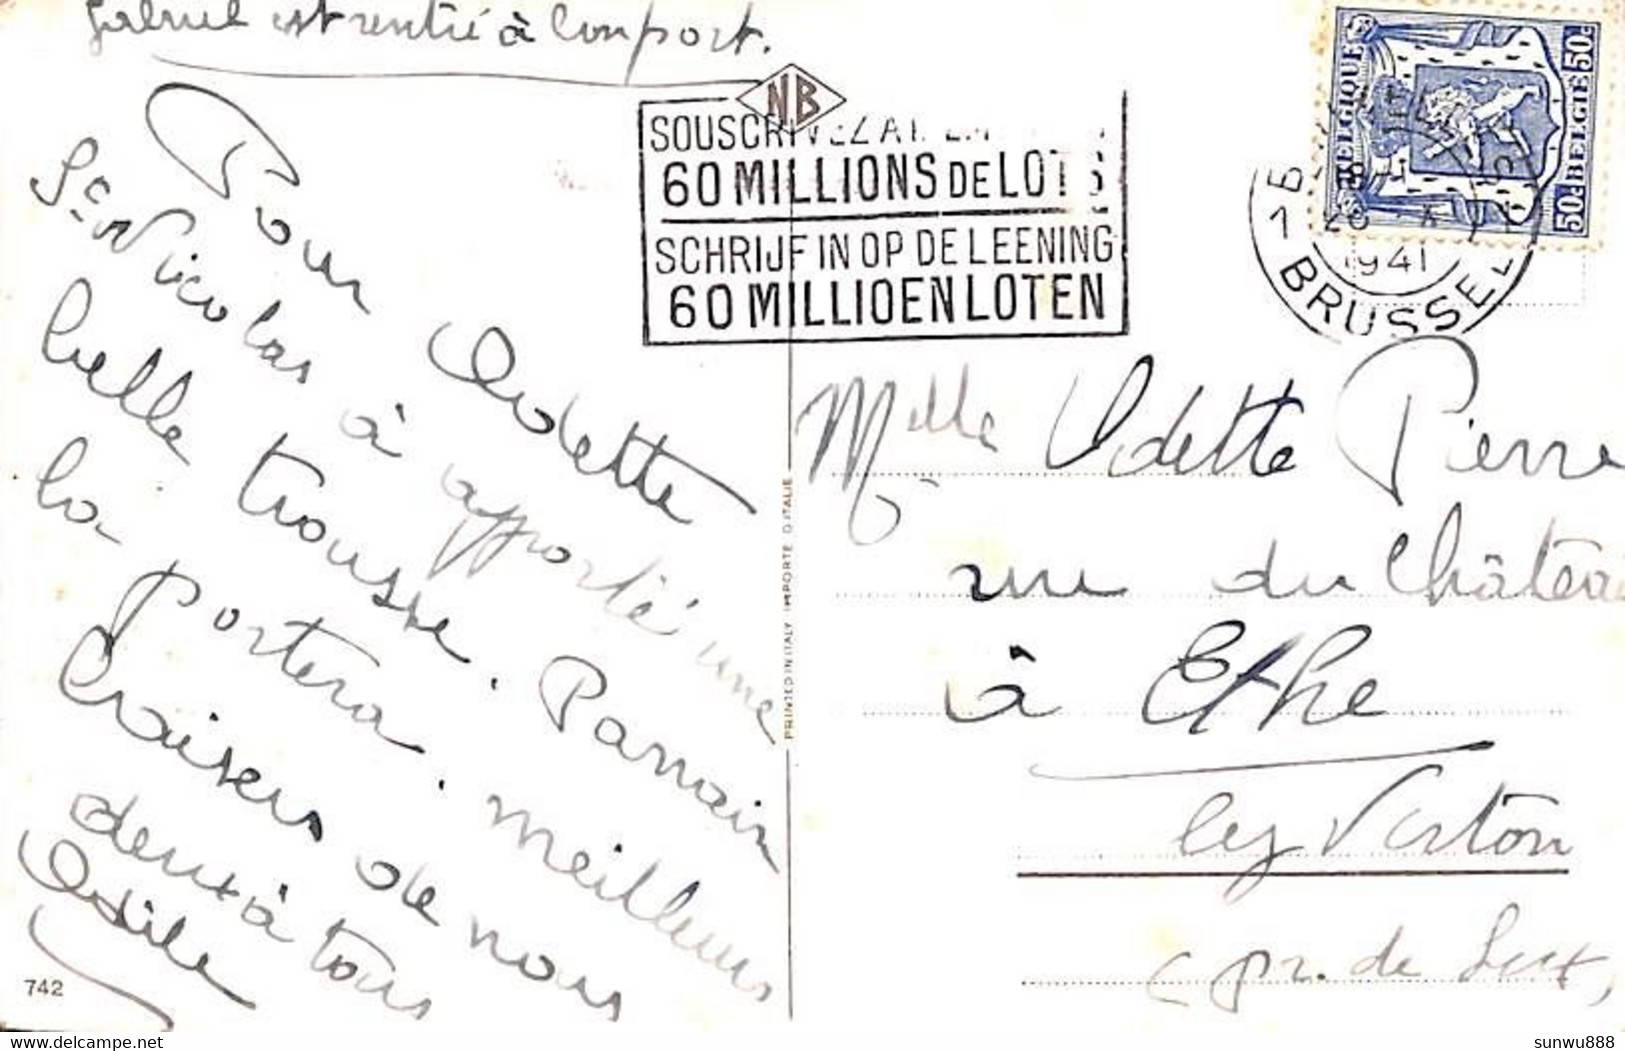 Gabriel est rentré à bon port.
Pour Odette
St Nicolas à apporté une
belle trousse. Parrain
la portera. Meilleurs
baisers de nous
deux à tous
Odile
742
PRINTED IN ITALY IMPORTE D'ITALIE
NB
SOUSCRIVEZ A
60 MILLIONS DE LOTS
SCHRIJF IN OP DE LEENING
60 MILLIOEN LOTEN
1941
BRUSSEL
BELGIQUE
BELGIE
50c
50c
Melle Odette Pierre
rue du Château
à Ethe
lez Virton
(pr. de Lux)
delcampe.net
sunwu888